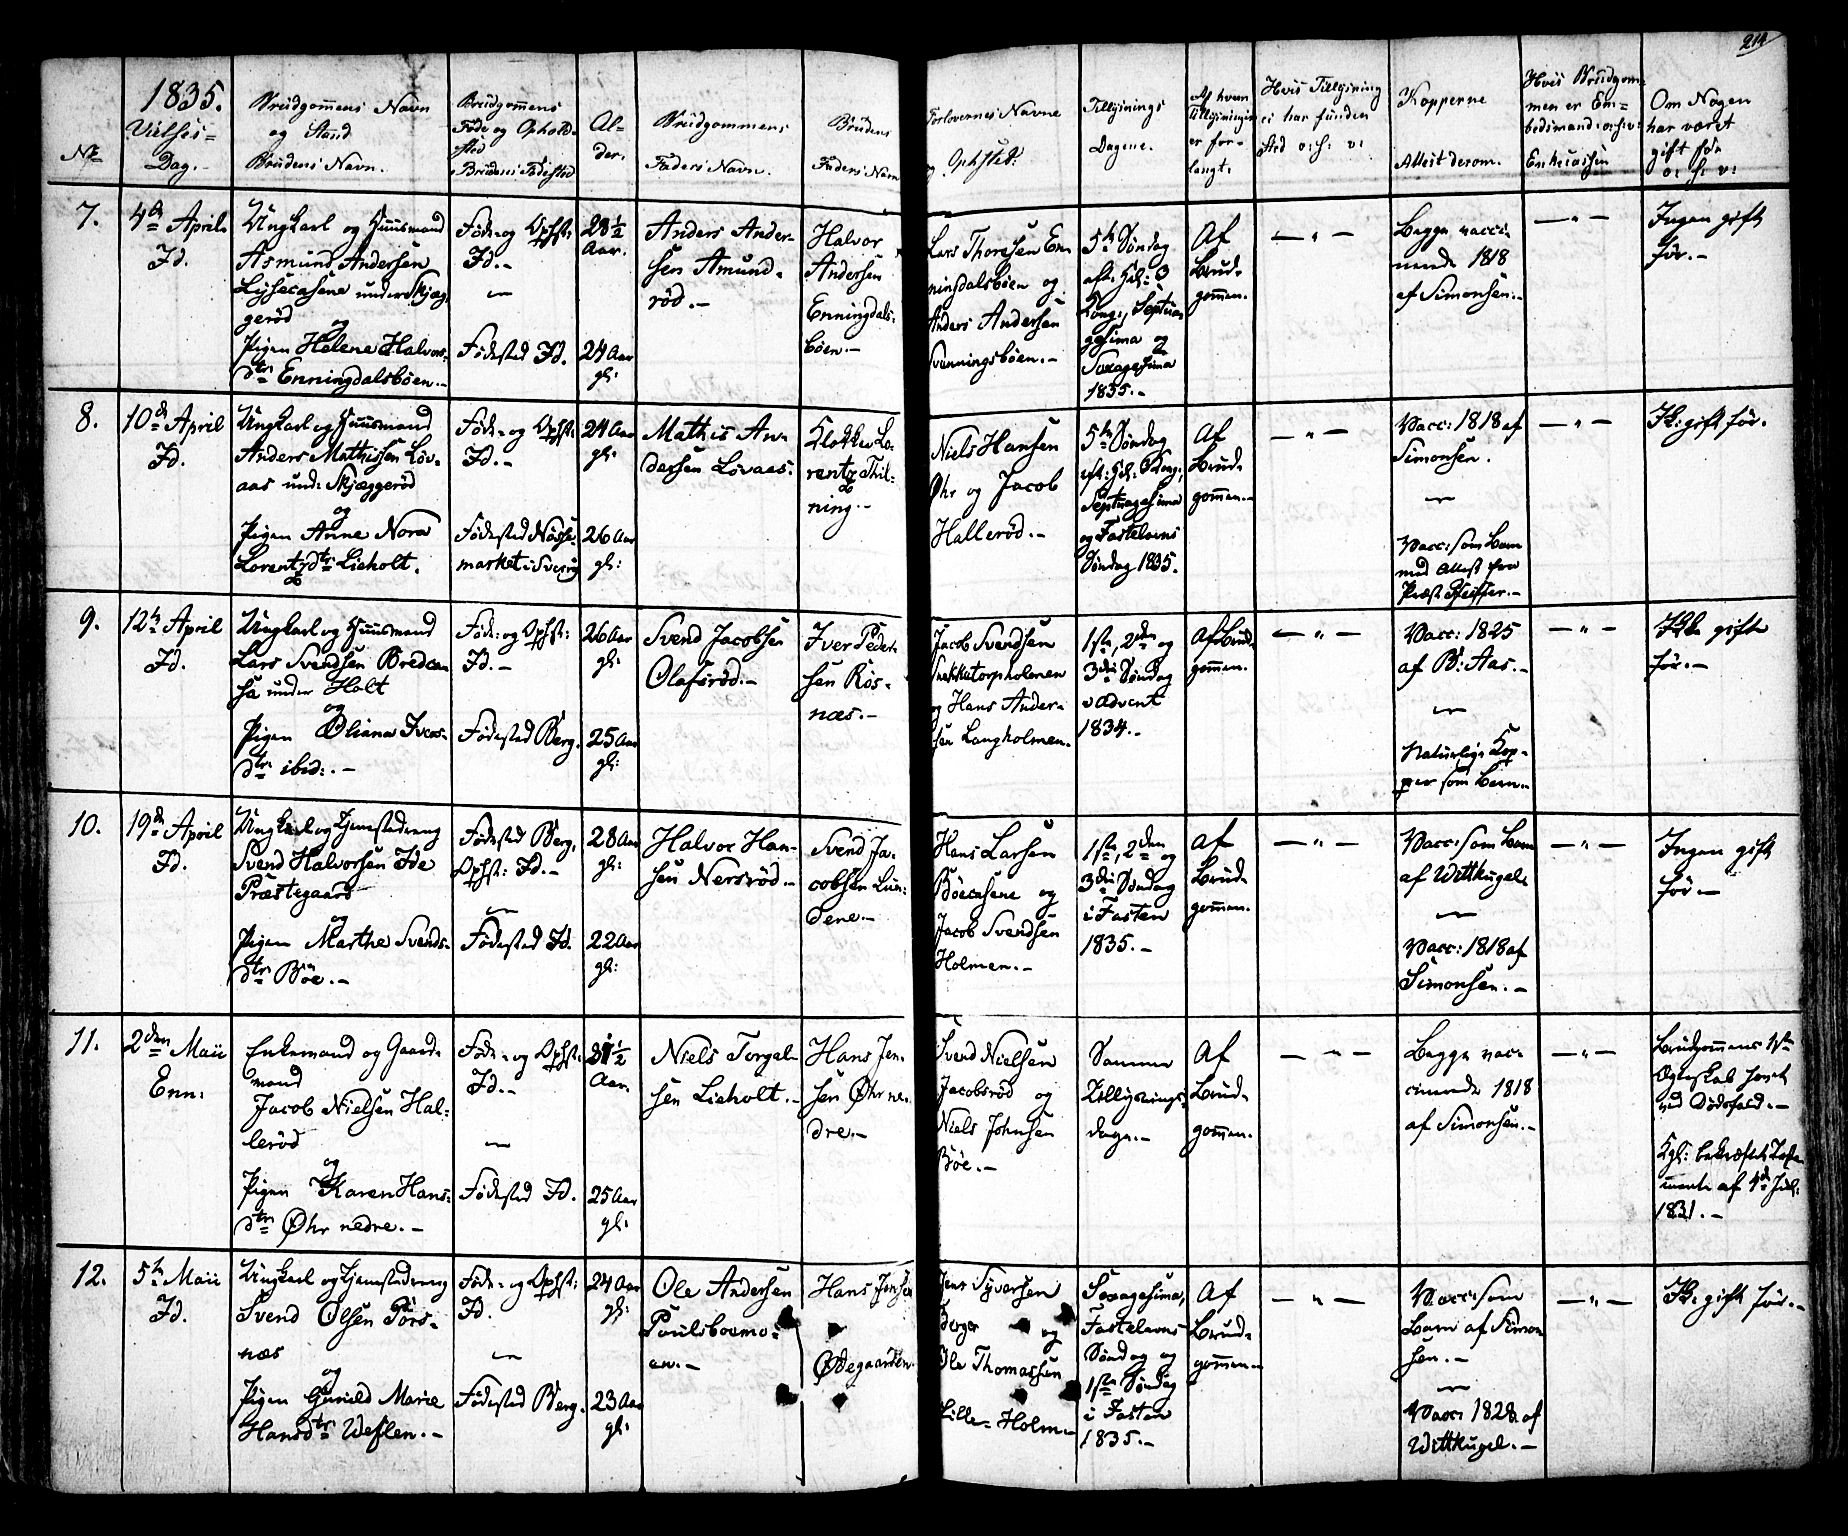 214
1835.
Vielses-
Dag.
No
Brudgommens Navn
og Stand
Brudens Navn.
Brudgommens
Føde og Opholds-
sted
Brudens Fødested
Al-
der.
Brudgommens
Faders Navn.
Brudens
Faders Navn
Forlovernes Navne
og Ophsted.
Tillysnings
Dagene.
Af hvem
Tillysningen
er for-
langt.
Hvis Tillysning
ei har funden
Sted o: s: v:
Kopperne
Attest derom.
Hvis Brudgom-
men er Em-
bedsmand o: s: v:
Enkecassen
Om Nogen
har været
gift før
o: s: v:
7.
4de April
Id.
Ungkarl og Huusmand
Asmund Andersen
Lysecasene under Skjæg
gerød
og
Pigen Helene Halvors-
dtr Enningdalsbøen.-
Føde- og Ophst:
Id.-
Fødested Id.
28½
Aar.
24 Aar
gl:
Anders Ander-
sen Amund-
rød.-
Halvor
Andersen
Enningdals-
bøen.-
Lars Thoresen En-
ningdalsbøen og
Anders Andersen
Svenningsbøen.-
5te Søndag
eft: Hel: 3
Kong., Septua
gesima og
Sexagesima
1835.-
Af
Brud-
gommen.
- " -
Begge vacci-
nerede 1818
af Simonsen.-
- " -
Ingen gift
før.-
8.
10de April
Id.
Ungkarl og Huusmand
Anders Mathissen Løv-
aas und: Skjæggerød
og
Pigen Anne Nora
Lorentzdtr Lieholt.
Føde- og Ophst:
Id.-
Fødested Nösse-
market i Sverig
24 Aar
gl:
26 Aar
gl:
Mathis An-
dersen Lövaas.
Klokker Lo-
rentz Thil-
ning.-
Niels Hansen
Øhr og Jacob
Hallerød.-
5te Søndag
eft: Hel: 3 Kong:,
Septuagesima
og Fastelavns
Søndag 1835.
Af
Brud-
gommen.-
- " -
Vacc: 1818 af
Simonsen.
Vacc: som Barn
med Attest fra
Præst Pfeiffer.-
- " -
Ik: gift før.
9.
12te April
Id.
Ungkarl og Huusmand
Lars Svendsen Bredca
sa under Holt
og
Pigen Oliana Ivers-
dtr ibid:.-
Føde: og Ophst:
Id.-
Fødested Berg.
26 Aar
gl:
25 Aar
gl:
Svend Jacobsen
Olafsrød.-
Iver Peder-
sen Rös-
næs.-
Jacob Svendsen
Snekketorpholmen
og Hans Ander-
sen Langholmen.
1ste, 2den og
3die Søndag
i Advent
1834.-
Af Brud-
gommen.
- " -
Vacc: 1825
af B: Aas.-
Naturlige Kop-
per som Barn.-
- " -
Ikke gift
før.-
10.
19de April
Id.
Ungkarl og Tjenestedreng
Svend Halvorsen Ide
Præstegaard
og
Pigen Marthe Svends-
dtr Böe.-
Fødested Berg,
Ophst: Id.-
Fødested Id.
28 Aar
gl:
22 Aar
gl:
Halvor Han-
sen Nersrød.-
Svend Ja-
cobsen Lun-
dene.-
Hans Larsen
Böecasene og
Jacob Svendsen
Holmen.-
1ste, 2den og
3die Søndag
i Fasten
1835.-
Af
Brud-
gommen.
- " -
Vacc: som Barn
af Wittkugel.
Vacc: 1818 af
Simonsen.-
- " -
Ingen gift
før.-
11.
2den Maii
Enn:
Enkemand og Gaard-
mand
Jacob Nielsen Hal-
lerød
og
Pigen Karen Hans-
dtr Øhr nedre.-
Føde- og Ophst:
Id.-
Fødested Id.
31½
Aar.
25 Aar
gl:
Niels Torgal-
sen Lieholt.-
Hans Jen-
sen Øhr ne-
dre.-
Svend Nielsen
Jacobsrød og
Niels Johnsen
Böe.-
Samme
Tillysnings-
dage.-
Af
Brud-
gommen.
- " -
Begge vac-
cinerede 1818
af Simonsen.-
- " -
Brudgommens 1ste
Ægteskab hævet
ved Dødsfald.-
Kgl: bekræftet Testa
mente af 4de Jul:
1831.-
12.
5te Maii
Id.
Ungkarl og Tjenestedreng
Svend Olsen Pors-
næs
og
Pigen Gunild Marie
Hansdtr Weslen.-
Føde- og Ophst:
Id.
Fødested Berg.
24 Aar
gl:
23 Aar
gl:
Ole Andersen
Poulsboemo-
en.-
Hans Jensen
Ødegaarden.
Jens Syversen
Berger og
Ole Thomassen
Lille-Holm.-
Sexagesima,
Fastelavns-
Søndag og
1ste Søndag
i Fasten
1835.-
Af
Brud-
gommen.-
- " -
Vacc: som
Barn af Simon
sen.-
Vacc: 1828 af
Wittkugel.-
- " -
Ik: gift før.-